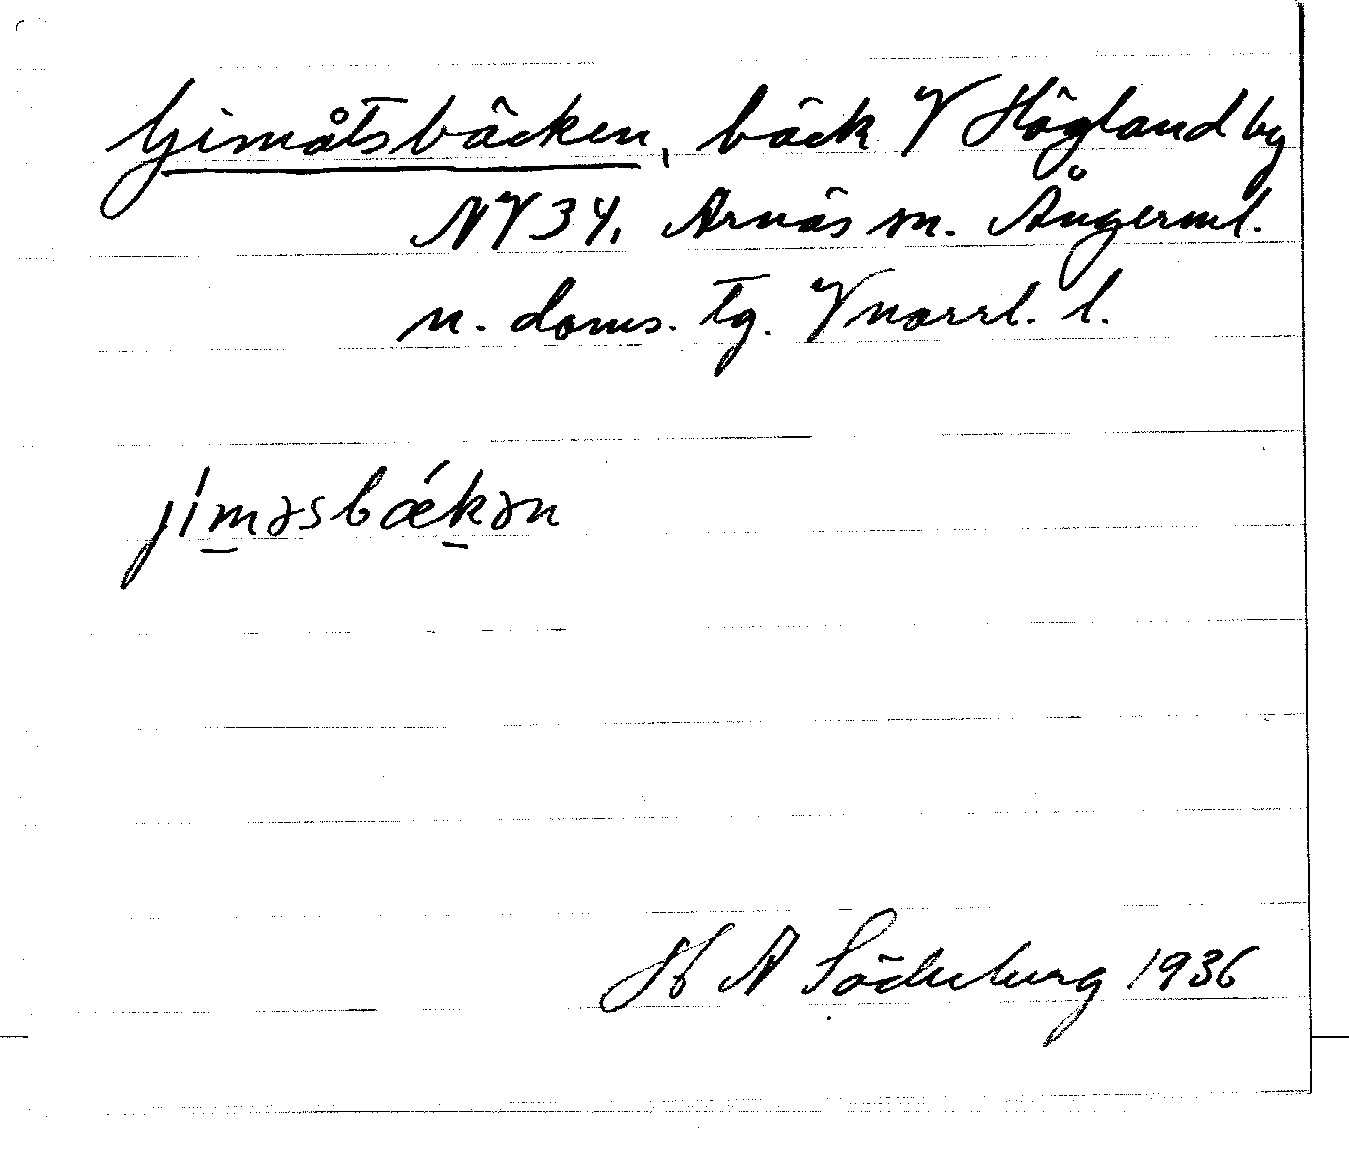 Gimåtsbäcken, bäck V Högland by
NV 34, Arnäs sn. Ångerml.
n. doms. tg. Vnorrl. l.
jím̲əsbǽk̲ən
H A Söderberg 1936